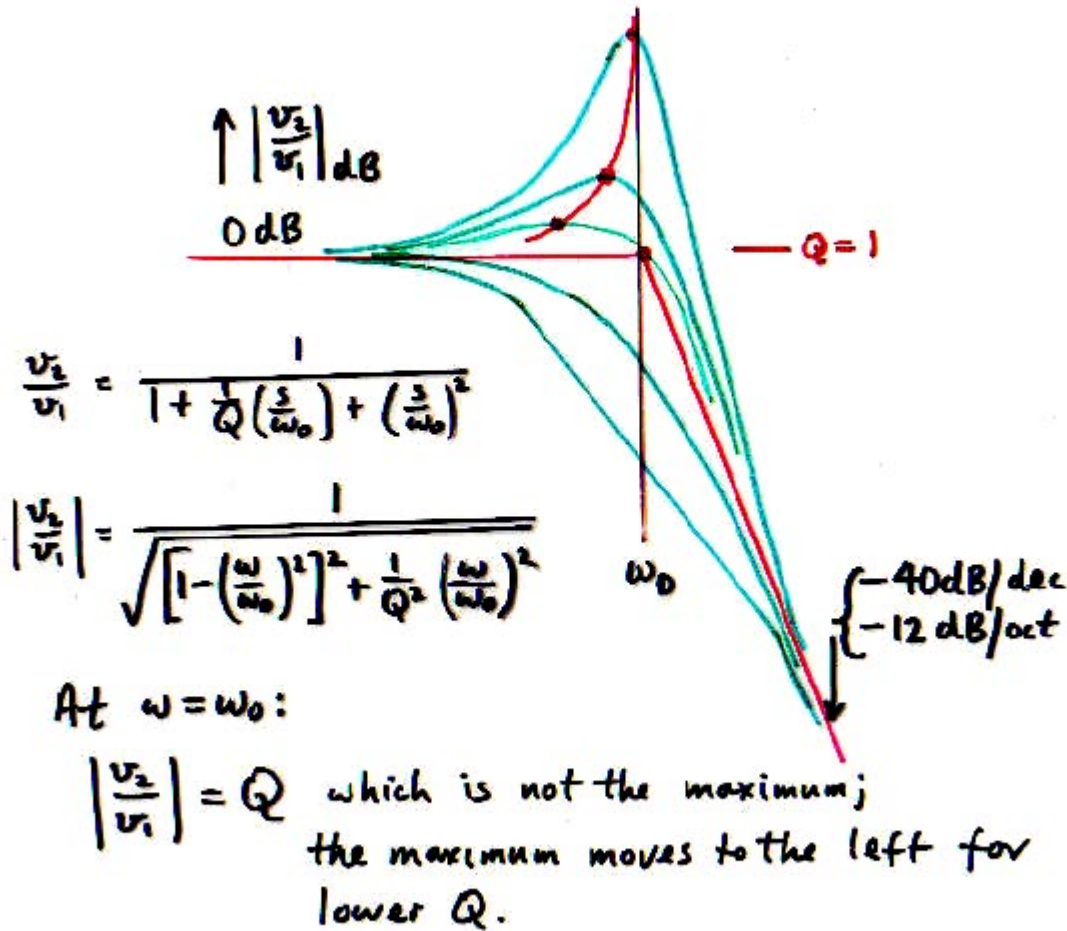 ↑ |v₂/v₁| dB
0 dB
Q = 1
v₂/v₁ = 1 / (1 + (1/Q)(s/ω₀) + (s/ω₀)²)
|v₂/v₁| = 1 / √([1-(ω/ω₀)²]² + (1/Q²)(ω/ω₀)²)
ω₀
{-40dB/dec
-12 dB/oct
At ω = ω₀:
|v₂/v₁| = Q which is not the maximum;
the maximum moves to the left for
lower Q.